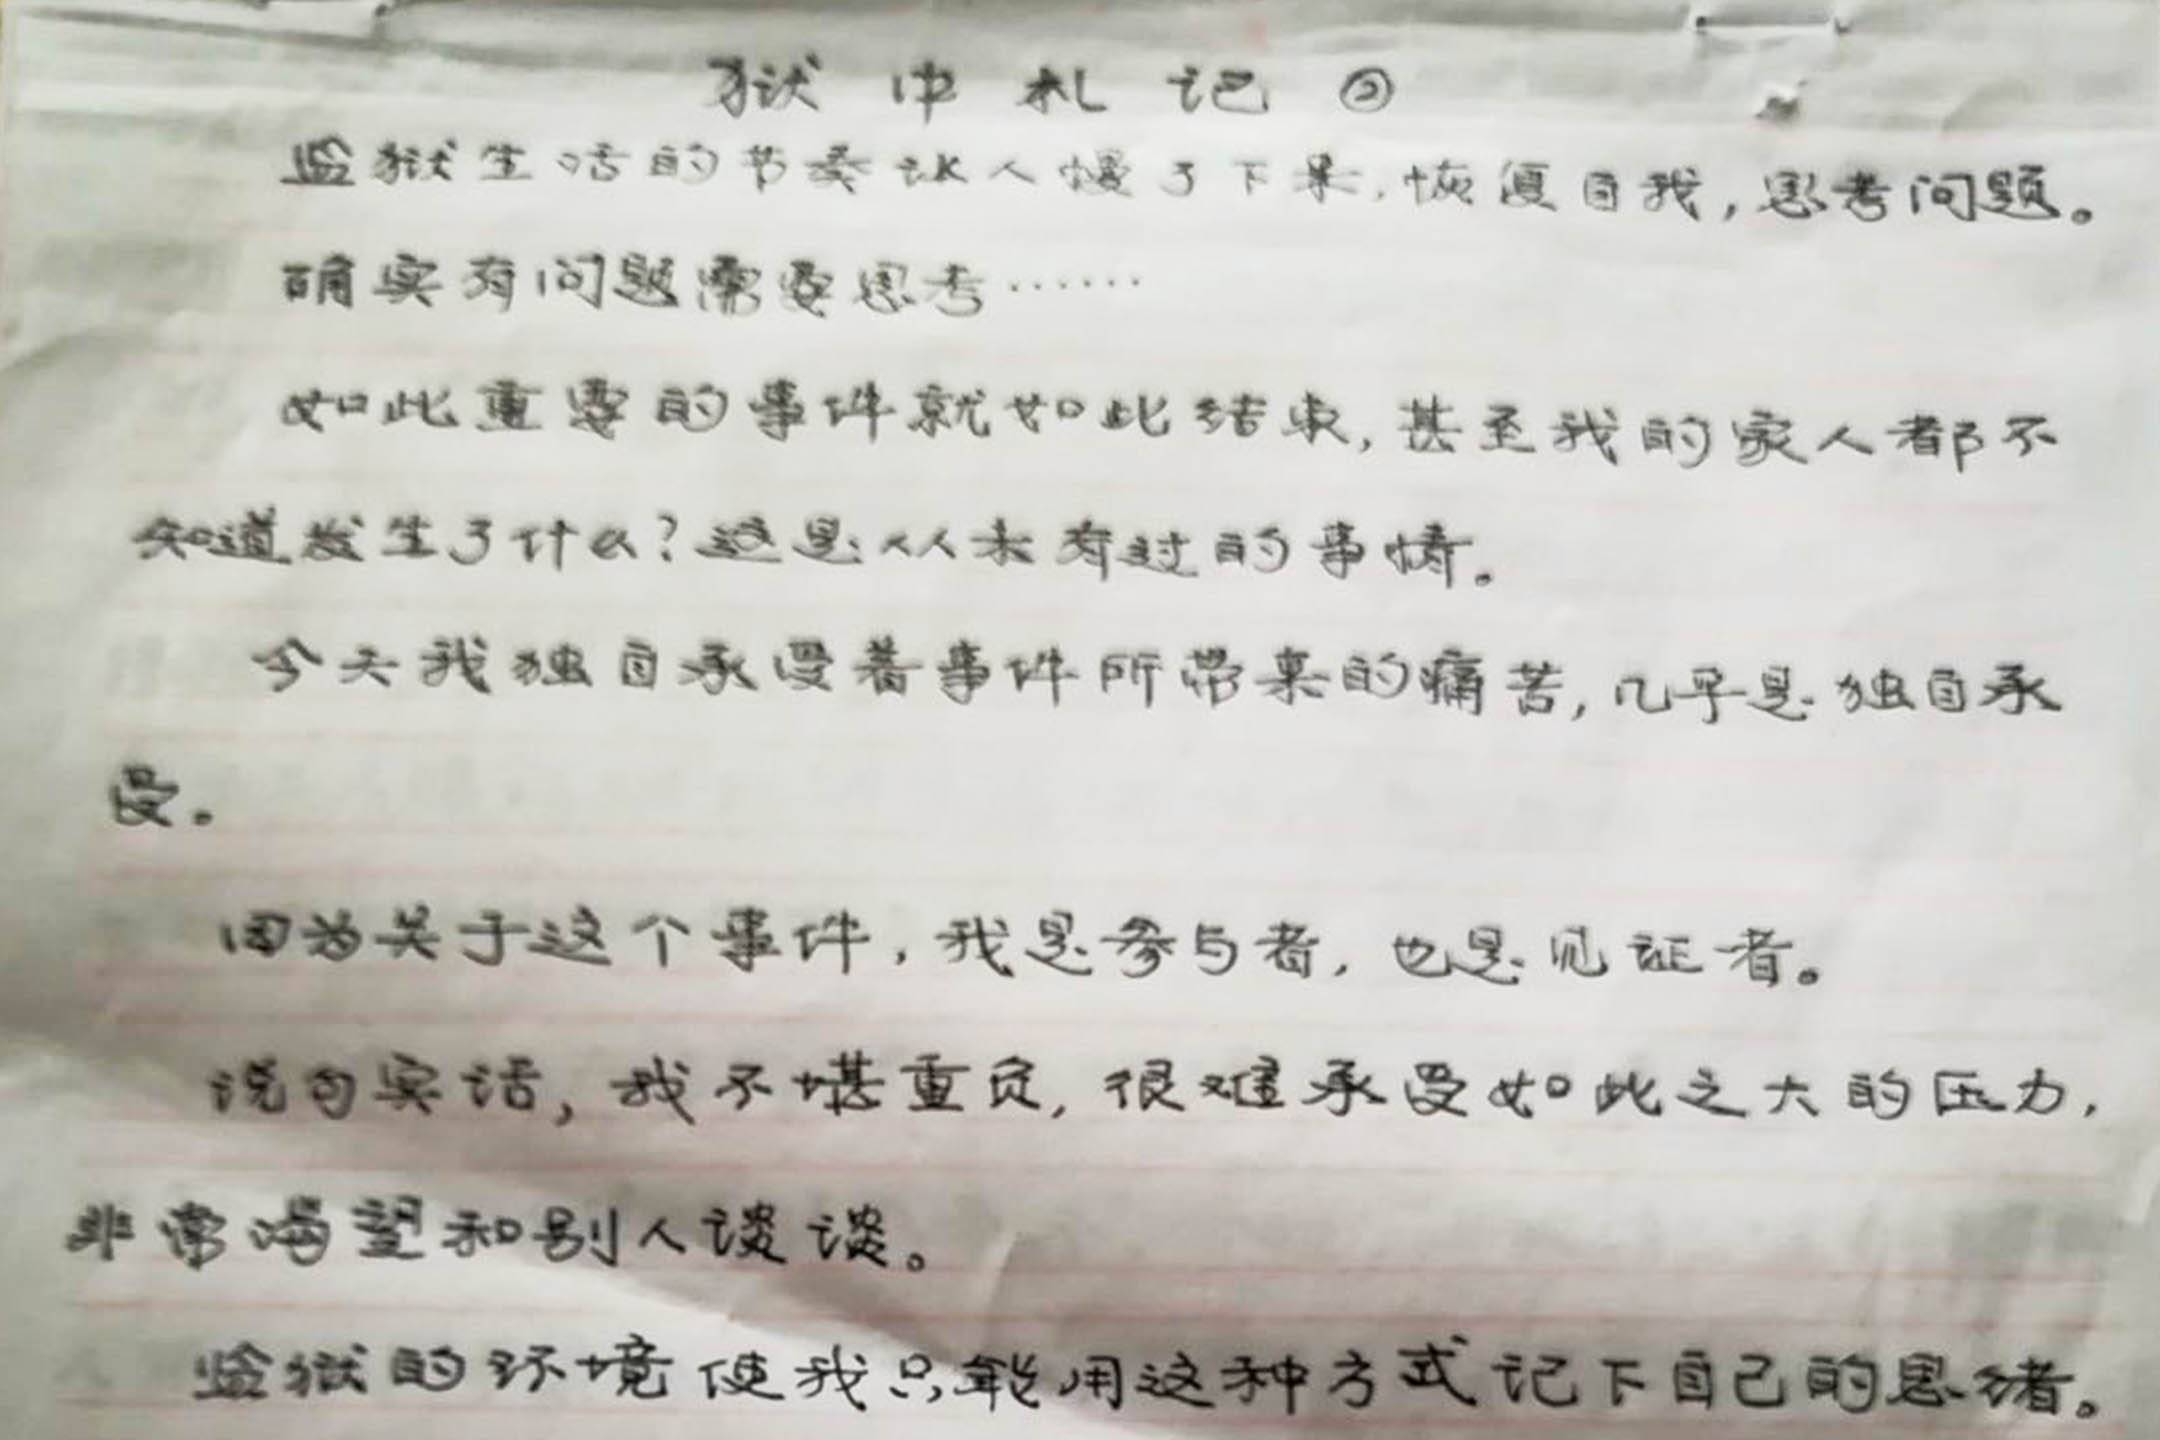 狱中札记②
监狱生活的节奏让人慢了下来,恢复自我,思考问题。
确实有问题需要思考……
如此重要的事件就如此结束,甚至我的家人都不
知道发生了什么?这是从未有过的事情。
今天我独自承受着事件所带来的痛苦,几乎是独自承
受。
因为关于这个事件,我是参与者,也是见证者。
说句实话,我不堪重负,很难承受如此之大的压力,
非常渴望和别人谈谈。
监狱的环境使我只能用这种方式记下自己的思绪。